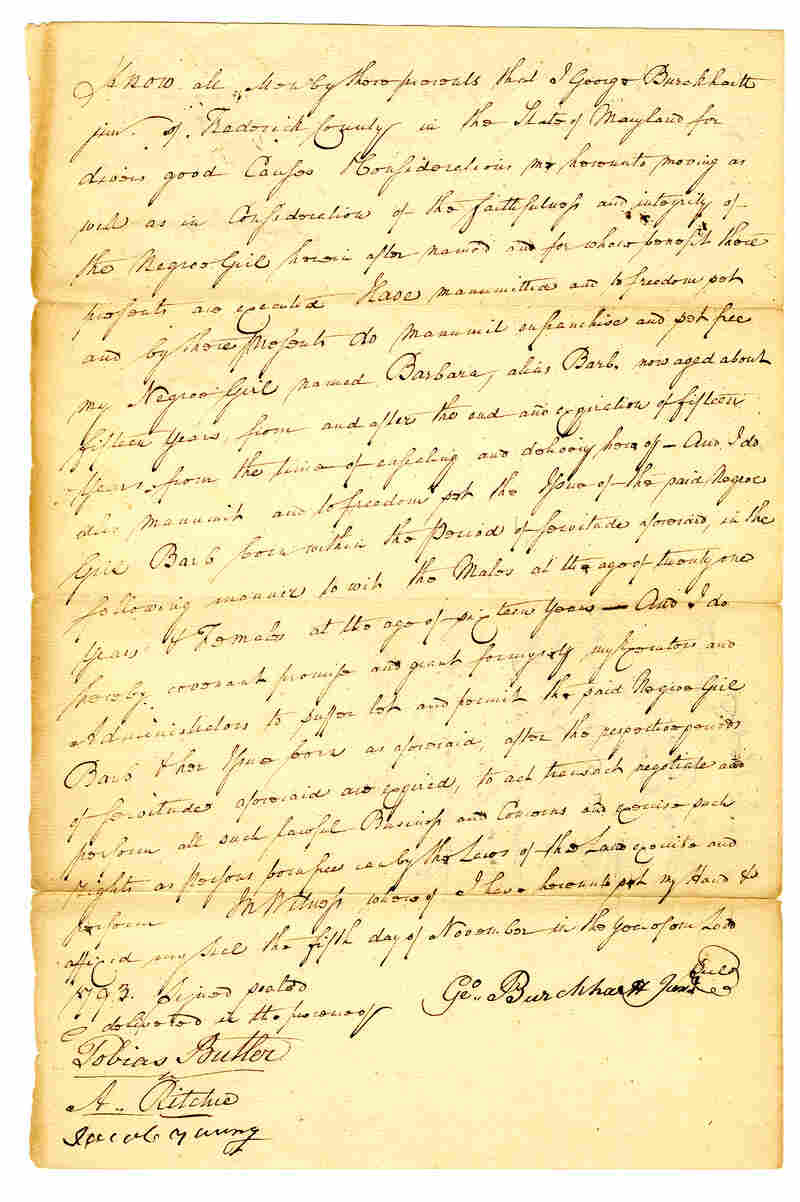 Know all Men by these presents that I George Burckhartt
jun. of Frederick County in the State of Maryland for
divers good Causes & Considerations me hereunto moving as
well as in Consideration of the faithfulness and integrity of
the Negroe Girl herein after named and for whose benefit these
presents are executed Have manumitted and to freedom set
and by these presents do manumit enfranchise and set free
my Negroe Girl named Barbara, alias Barb, now aged about
fifteen Years, from and after the end and expiration of fifteen
Years from the time of ensealing and delivery hereof — And I do
also manumit and to freedom set the Issue of the said Negroe
Girl Barb born within the Period of servitude aforesaid, in the
following manner to wit the Males at the age of twenty one
Years & Females at the age of sixteen Years — And I do
hereby covenant promise and grant for myself my Executors and
Administrators to suffer let and permit the said Negroe Girl
Barb & her Issue born as aforesaid, after the respective periods
of servitude aforesaid are expired, to act transact negotiate and
perform all such lawful Business and Concerns and exercise such
rights as Persons born free can by the Laws of the Land exercise and
perform In Witness whereof I have hereunto set my Hand &
affixed my seal the fifth day of November in the Year of our Lord
1793. Signed sealed
& delivered in the presence of Geo. Burckhartt Junr Seal
Tobias Butler
A. Ritchie
Jacob young